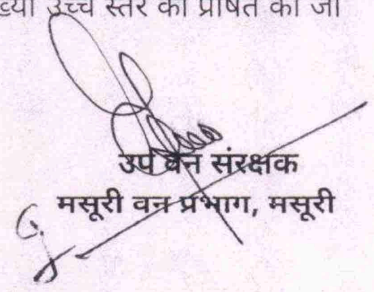 ख्या उच्च स्तर को प्रेषित की जा
उप वन संरक्षक
मसूरी वन प्रभाग, मसूरी